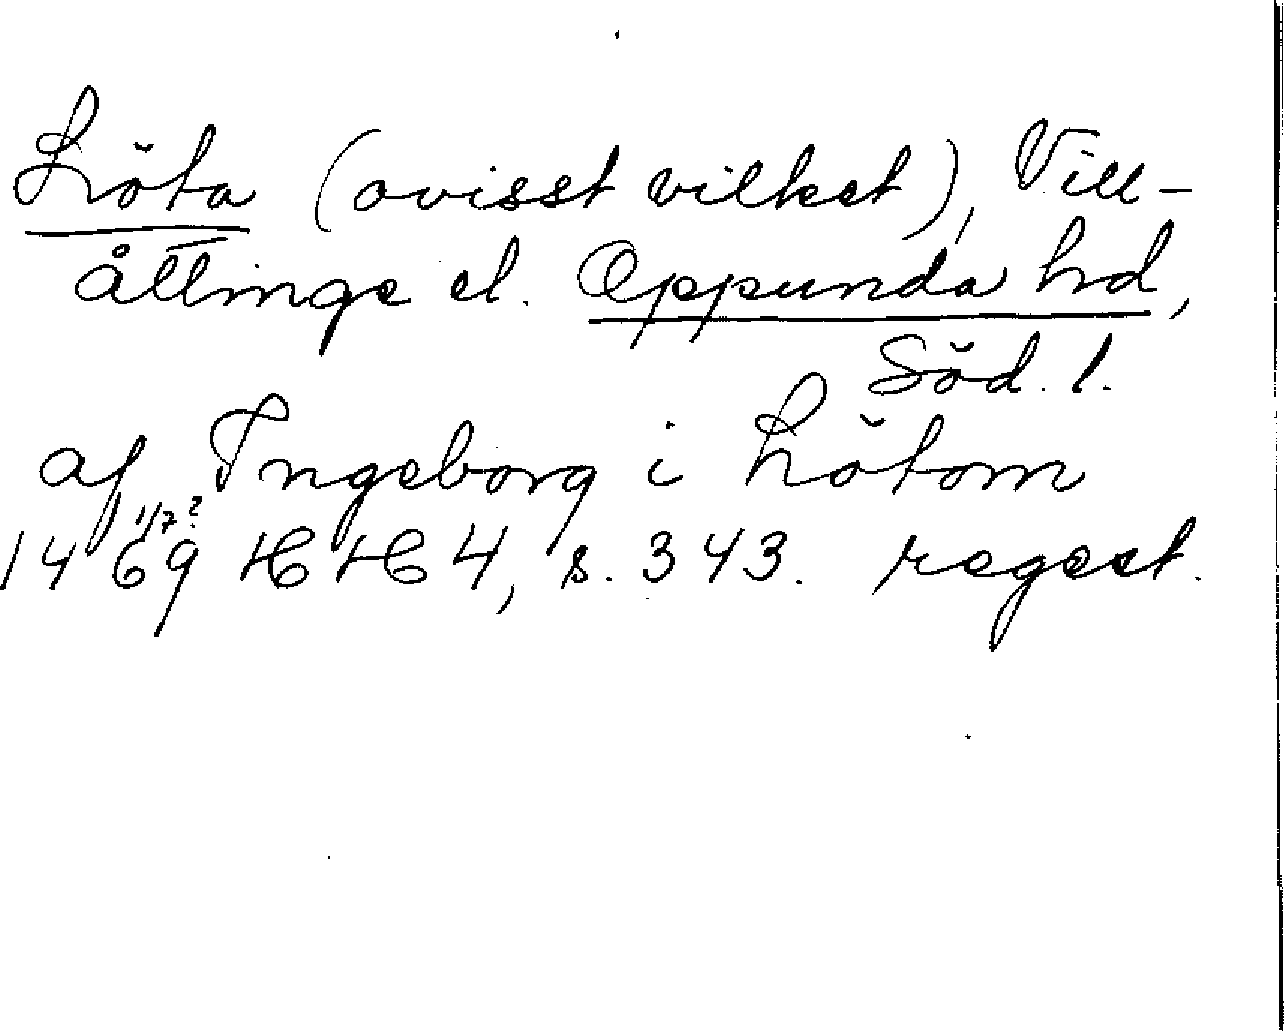 Löta (ovisst vilket), Vill-
åttinge el. Oppunda hd,
Söd. l.
af Ingeborg i Lötom
1/7?
1469 HH 4, s. 343. regest.